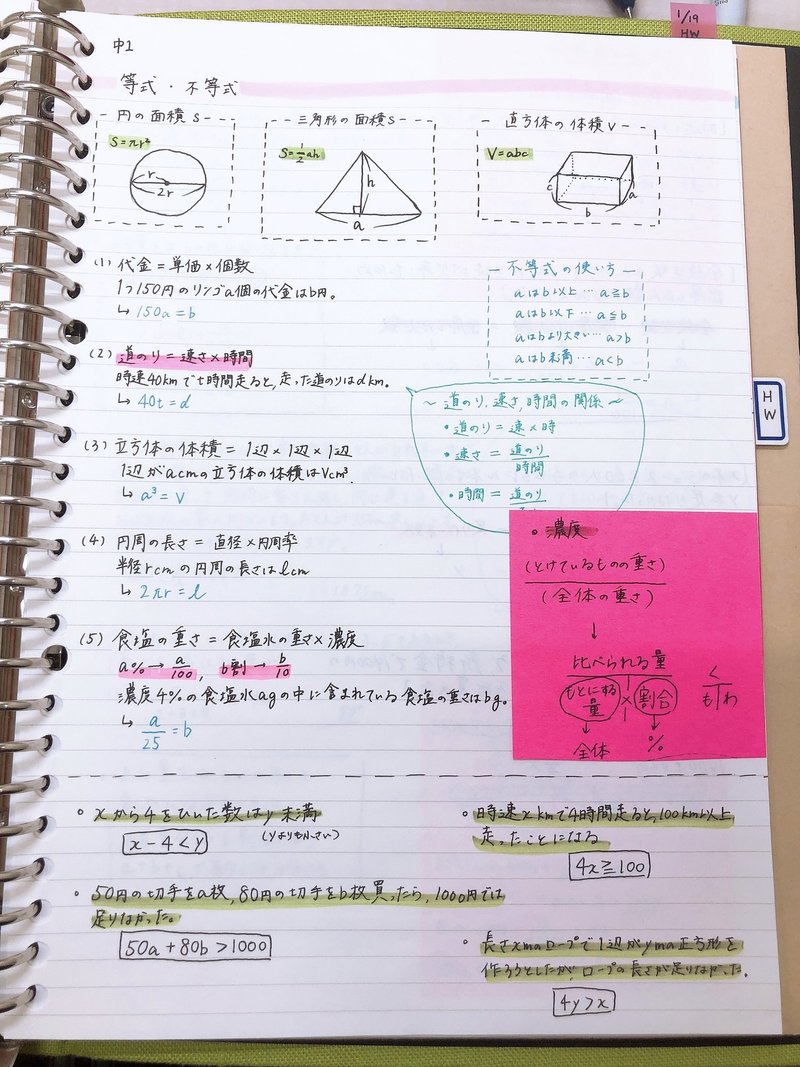 1/19
HW
中1
等式・不等式
円の面積 S
S=πr²
r
2r
三角形の面積S
S=1/2ah
h
a
直方体の体積V
V=abc
c
b
a
(1) 代金=単価×個数
1つ150円のリンゴa個の代金はb円。
↳ 150a=b
不等式の使い方
aはb以上…a≧b
aはb以下…a≦b
aはbより大きい…a>b
aはb未満…a<b
(2) 道のり=速さ×時間
時速40kmでt時間走ると、走った道のりはdkm。
↳ 40t=d
~ 道のり、速さ、時間の関係 ~
・道のり=速×時
・速さ=道のり/時間
・時間=道のり
HW
(3) 立方体の体積=1辺×1辺×1辺
1辺がacmの立方体の体積はVcm³.
↳ a³=V
(4) 円周の長さ=直径×円周率
半径rcmの円周の長さはlcm
↳ 2πr=l
(5) 食塩の重さ=食塩水の重さ×濃度
a%→a/100, b割→b/10
濃度4%の食塩水agの中に含まれている食塩の重さはbg。
↳ a/25=b
・濃度
(とけているものの重さ)
(全体の重さ)
↓
比べられる量
もとにする量×割合
↓ ↓
全体 %
く
も|わ
・xから4をひいた数はy未満
(yよりも小さい)
x-4<y
・時速xkmで4時間走ると、100km以上
走ったことになる
4x≧100
・50円の切手をa枚,80円の切手をb枚買ったら,1000円では
足りなかった。
50a+80b>1000
・長さxmのロープで1辺がymの正方形を
作ろうとしたが、ロープの長さが足りなかった。
4y>x